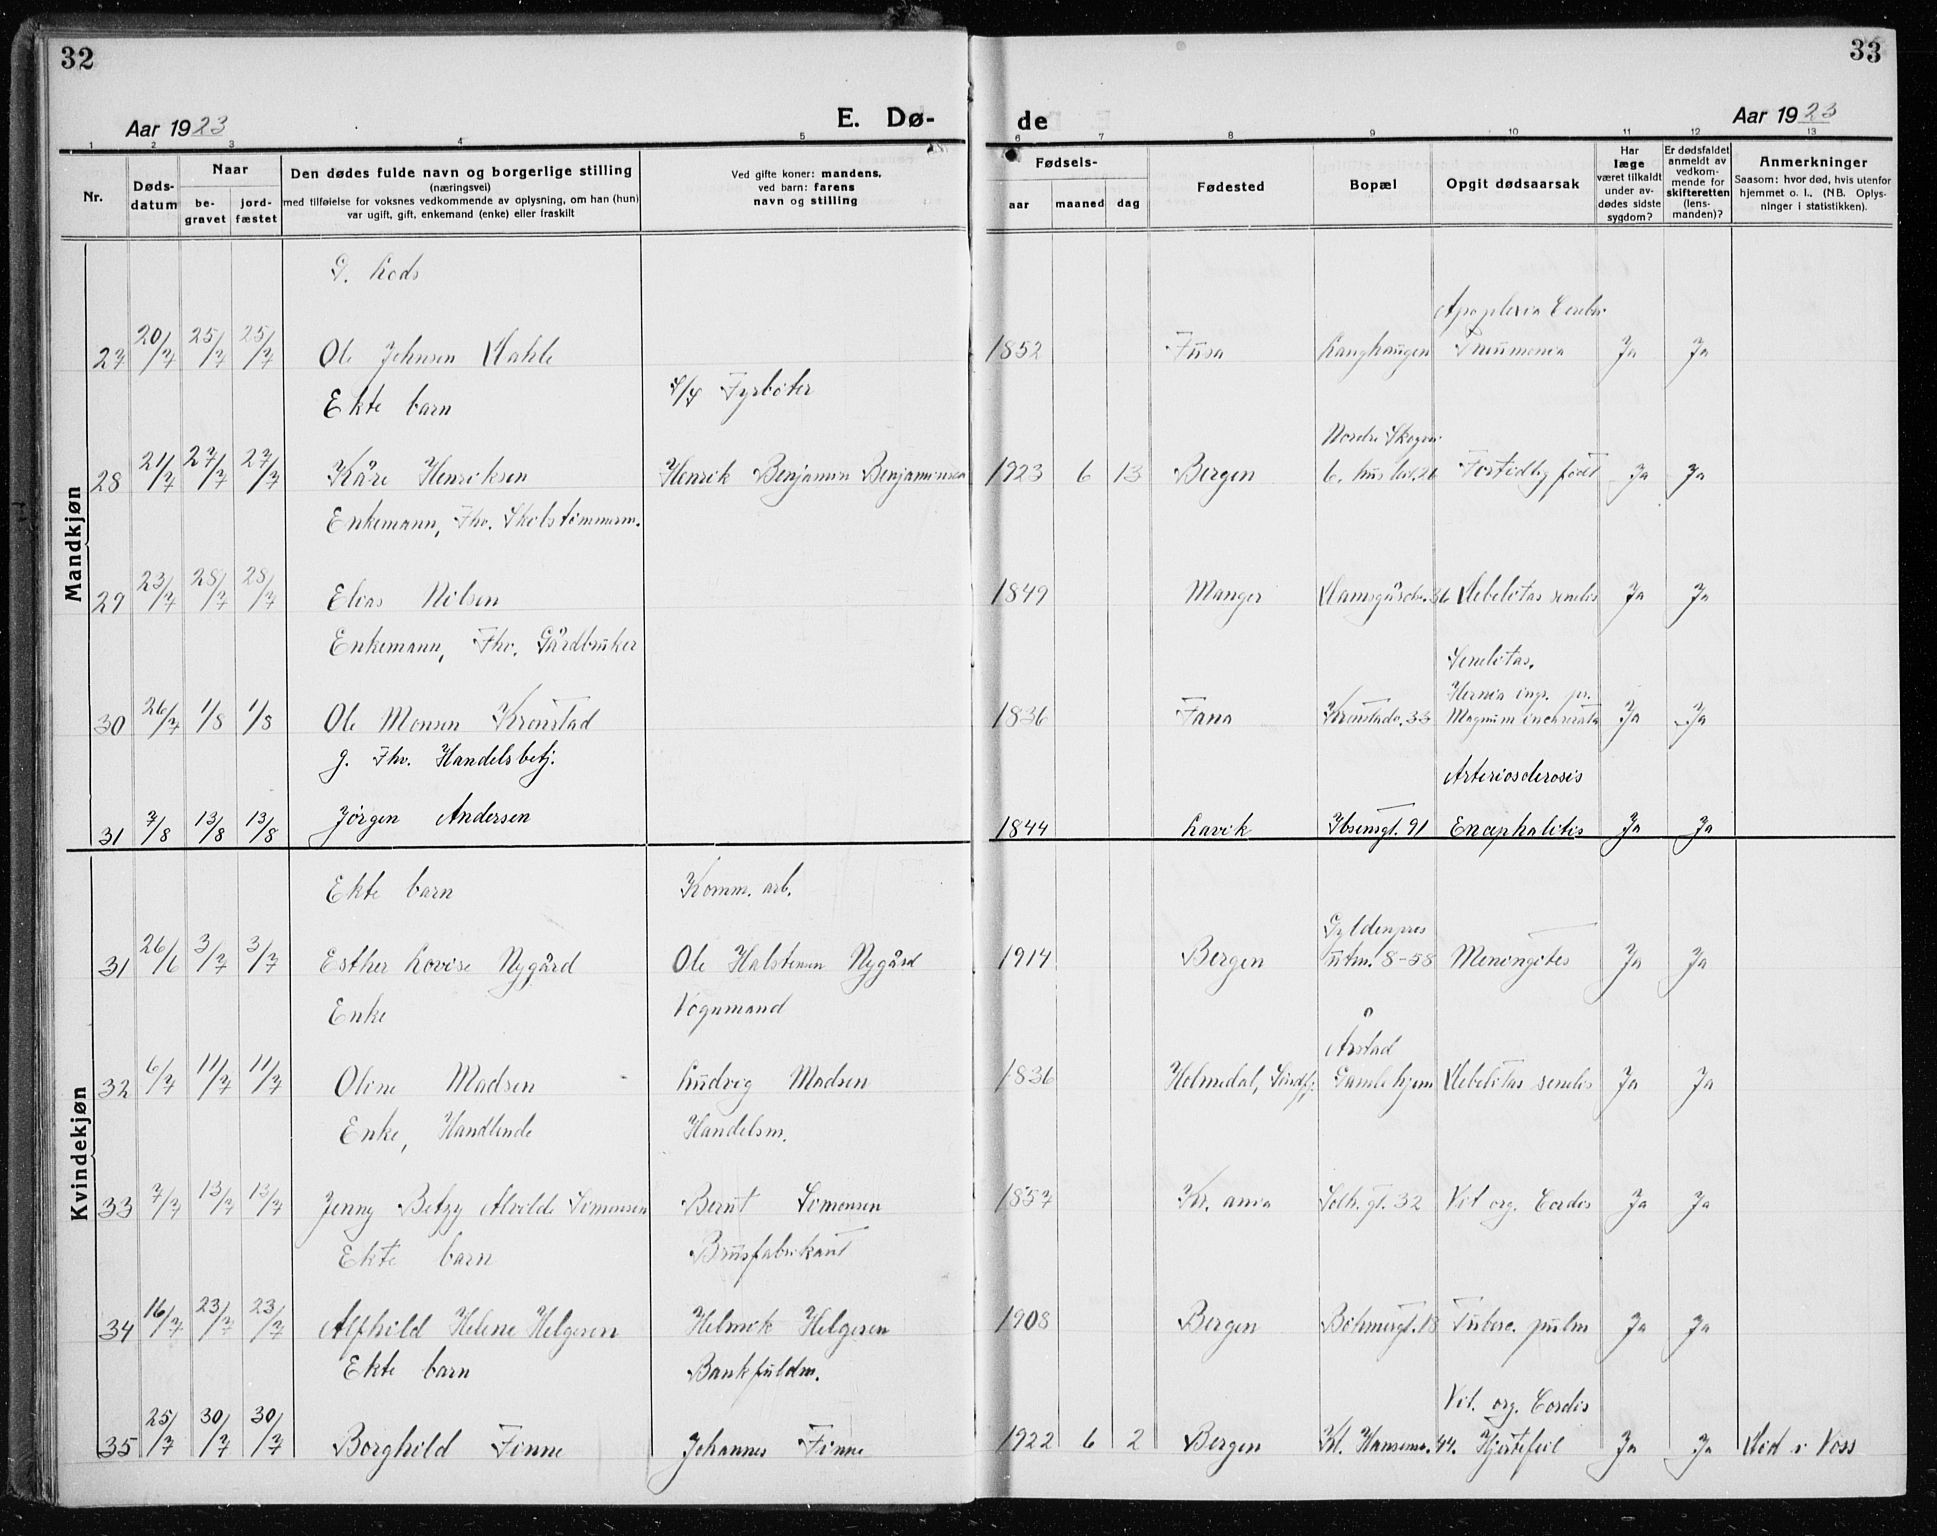 32
33
Aar 1923
E. Dø-
de
Aar 1923
1 2 3 4 5 6 7 8 9 10 11 12 13
Nr.
Døds-
datum
Naar
be-
gravet
jord-
fæstet
Den dødes fulde navn og borgerlige stilling
(næringsvei)
med tilføielse for voksnes vedkommende av oplysning, om han (hun)
var ugift, gift, enkemand (enke) eller fraskilt
Ved gifte koner: mandens,
ved barn: farens
navn og stilling
Fødsels-
aar maaned dag
Fødested
Bopæl
Opgit dødsaarsak
Har
læge
været tilkaldt
under av-
dødes sidste
sygdom?
Er dødsfaldet
anmeldt av
vedkom-
mende for
skifteretten
(lens-
manden)?
Anmerkninger
Saasom: hvor død, hvis utenfor
hjemmet o. l., (NB. Oplys-
ninger i statistikken).
Mandkjøn
G. Lods
Apoplexia
27 20/7 25/7 25/7 Ole Johnsen Dahle 1852 Fusa Langhaugen Pneumonia Ja Ja
Ekte barn Fyrbøter
Nordre Skogv.
28 21/7 27/7 27/7 Kåre Henriksen Henrik Benjamin Benjaminsen 1923 6 13 Bergen 6. hus Fortidlig født Ja Ja
Enkemann, Fhv.
29 23/7 28/7 28/7 Elias Nilsen 1849 Manger Damsgårdv. 36 Debelitas senelis Ja Ja
Enkemann, Fhv. Gårdbruker
Senelitas.
Hernia ing. pr.
30 26/7 1/8 1/8 Ole Monsen Kronstad 1836 Fana Kronstadv. 33 Magnum incarserata Ja Ja
g. Fhv. Handelsbetj.
Arteriosclerosis
31 7/8 13/8 13/8 Jørgen Andersen 1844 Lavik Ibsensgt. 91 Encephalitis Ja Ja
Kvindekjøn
Ekte barn Komm. arb.
Gyldenpris
31 26/6 3/7 3/7 Esther Lovise Nygård Ole Halstensen Nygård 1914 Bergen 8-58 Meningites Ja Ja
Enke Vognmand
Årstad
32 6/7 11/7 11/7 Oline Madsen Ludvig Madsen 1836 Holmedal, Søndfj. Gamlehjem Debelitas senelis Ja Ja
Enke, Handlende Handelsm.
33 7/7 13/7 13/7 Jenny Betzy Alvilde Simonsen Bernt Simonsen 1857 Kr. ania Solh. gt. 32 Vit org. Cordis Ja Ja
Ekte barn Brusfabrikant
34 16/7 23/7 23/7 Alfhild Helene Helgesen Helmik Helgesen 1908 Bergen Bøhmergt. 18 Tuberc. pulm Ja Ja
Ekte barn Bankfuldm.
Vit. org. Cordis
35 25/7 30/7 30/7 Borghild Finne Johannes Finne 1922 6 2 Bergen Kl. Hansensv. 44. Hjertefeil Ja Ja Død i Voss